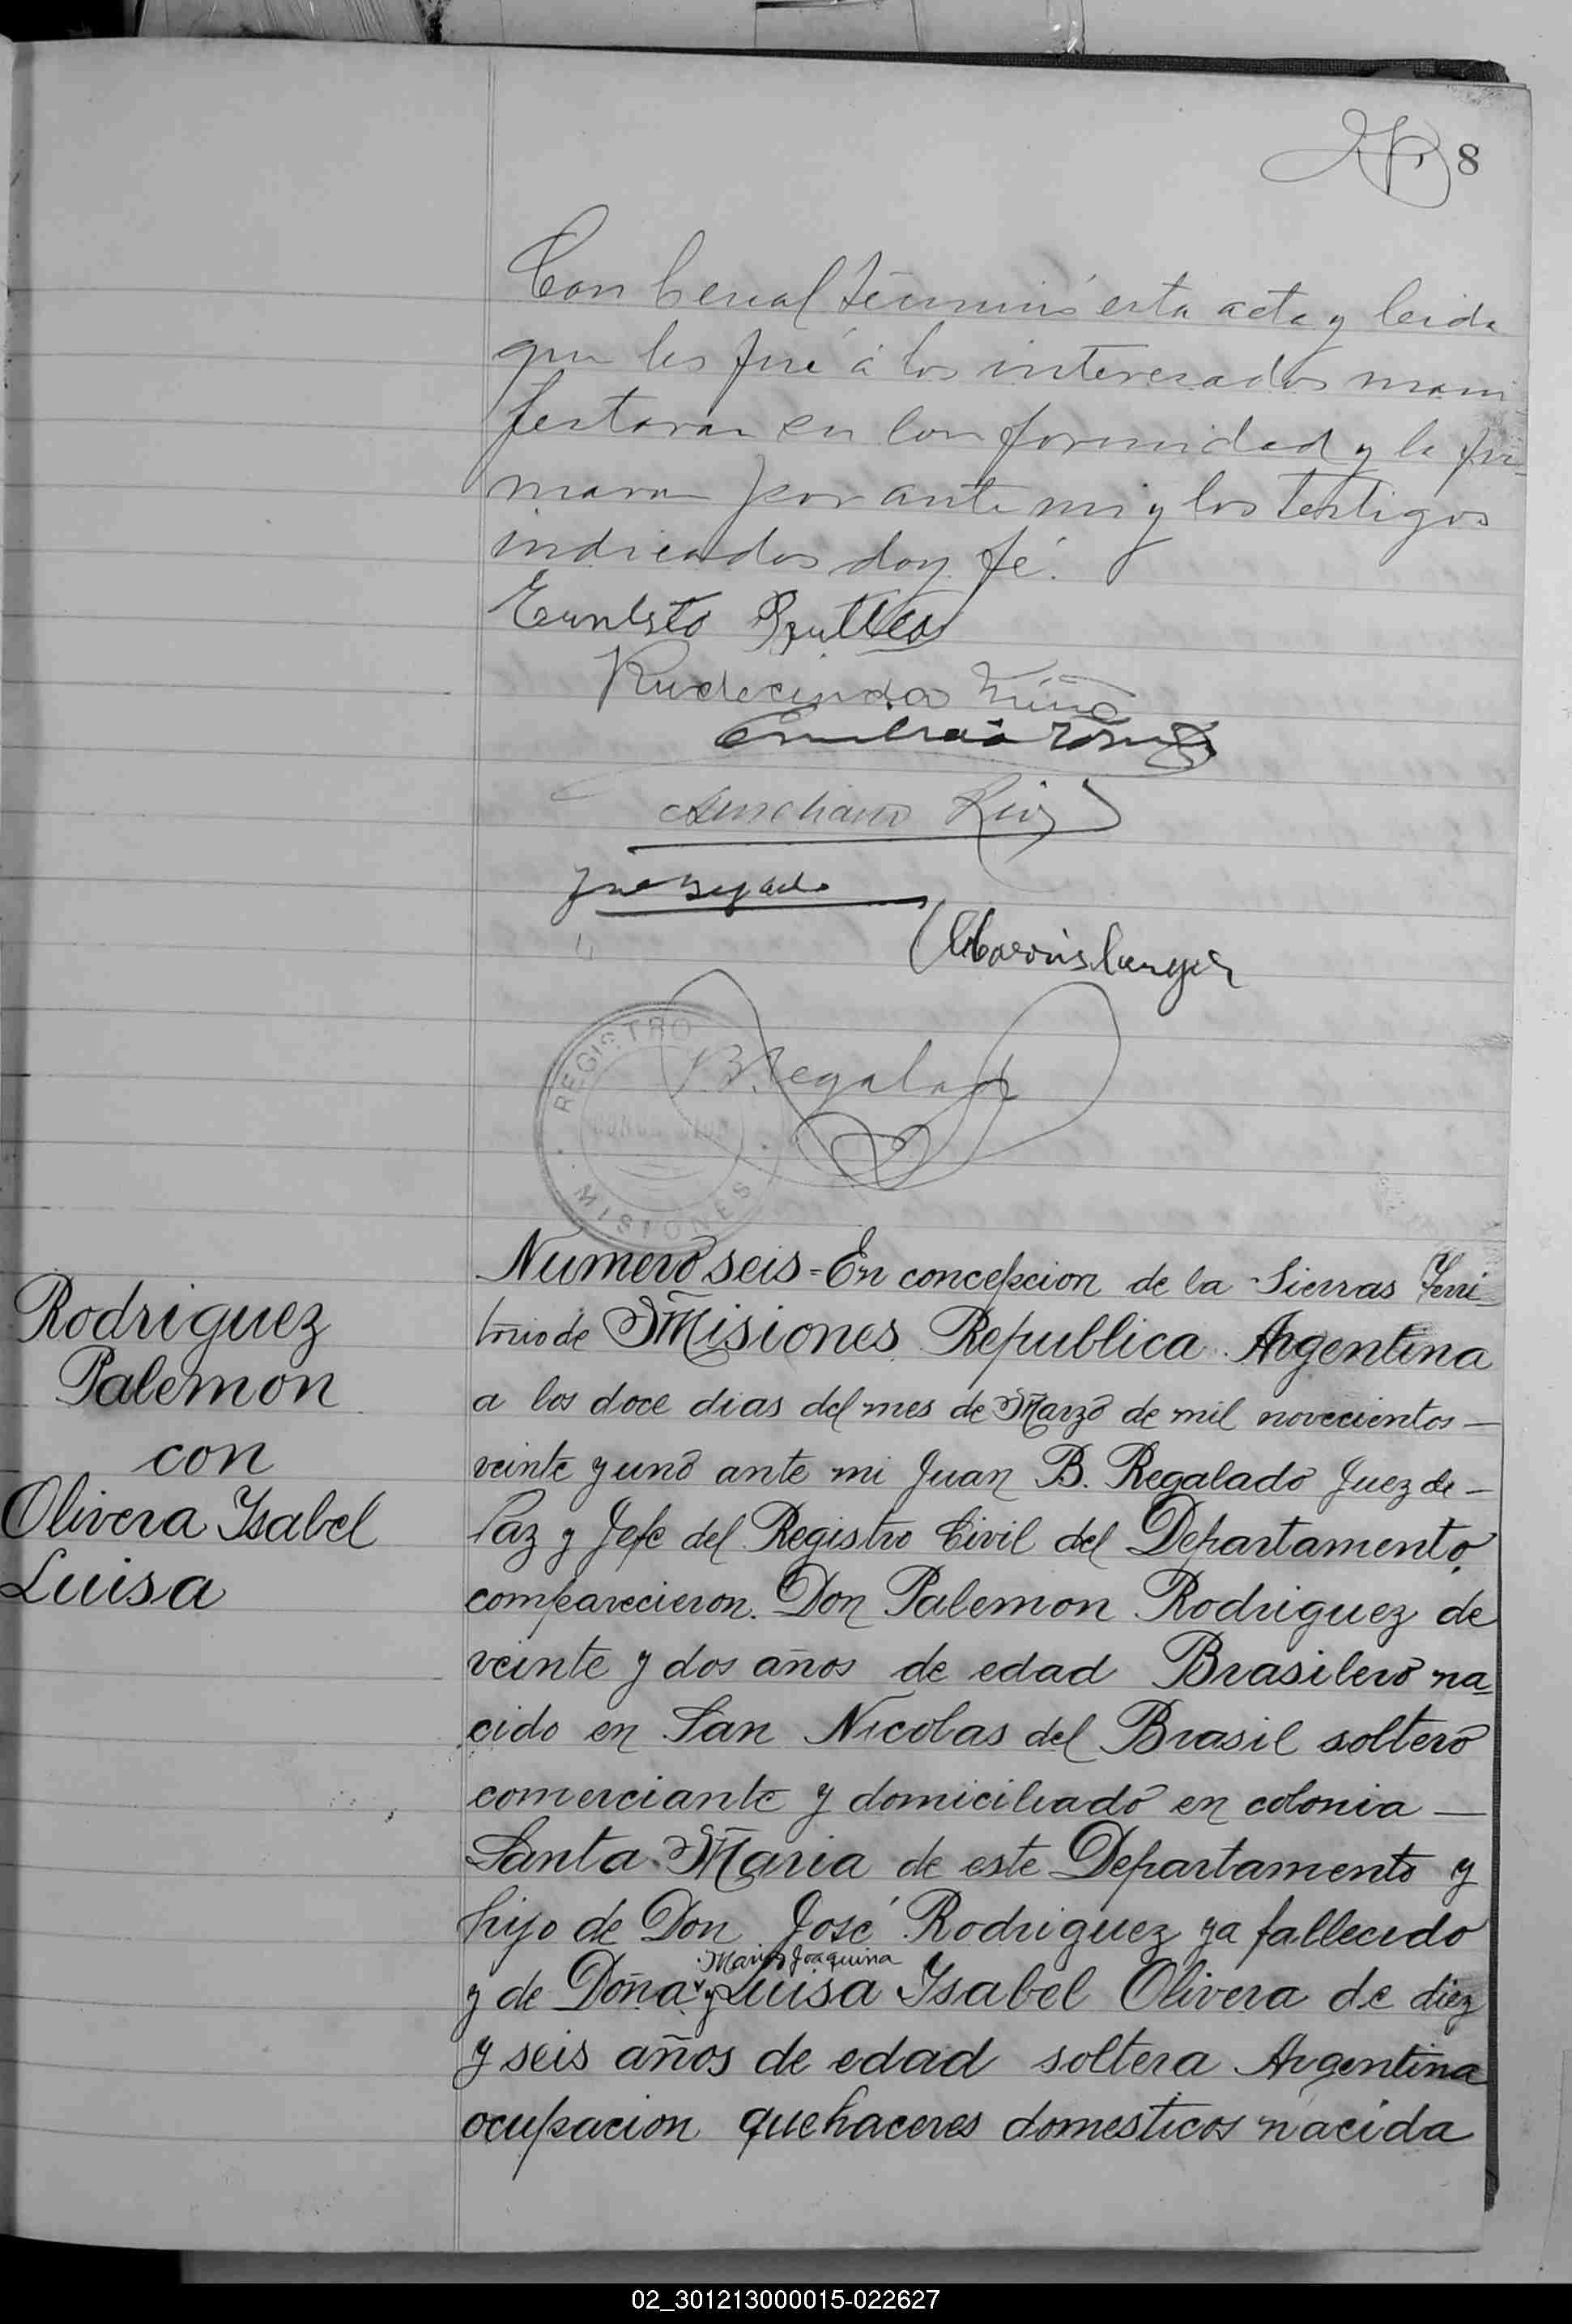 8
Con lo cual terminó esta acta y leida
que les fué á los interesados mani
festaron su conformidad y la fir-
maron por ante mi y los testigos
indicados doy fé.
Ernesto
Rudecindo Niño
Aureliano
B. Regalado
REGISTRO
MISIONES
Rodriguez
Palemon
con
Olivera Ysabel
Luisa
Numero seis - En concepcion de la Sierras Terri-
torio de Misiones Republica Argentina
a los doce dias del mes de Marzo de mil novecientos —
veinte y uno ante mi Juan B. Regalado Juez de —
Paz y Jefe del Registro Civil del Departamento
comparecieron. Don Palemon Rodriguez de
veinte y dos años de edad Brasilero na-
cido en San Nicolas del Brasil soltero
comerciante y domiciliado en colonia —
Santa Maria de este Departamento y
hijo de Don José Rodriguez ya fallecido
Maria Joaquina
y de Doña y Luisa Ysabel Olivera de diez
y seis años de edad soltera Argentina
ocupacion quehaceres domesticos nacida
02_301213000015-022627